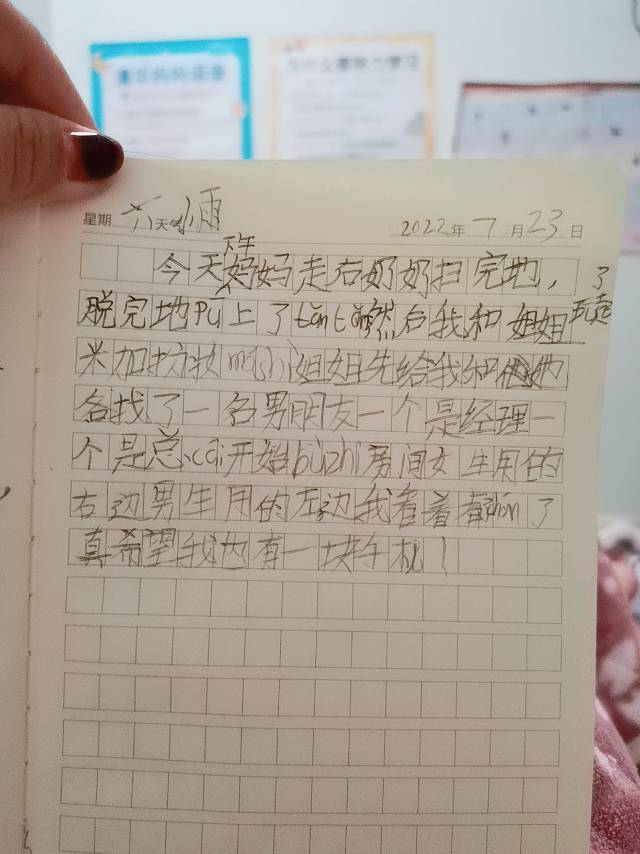 清华妈妈语录
为什么要努力学习
星期 六 天气 小雨 2022年7月23日
下午
今天妈妈走右奶奶扫完地，了
脱完地pū上了tǎn 然后我和姐姐
米加 姐姐先给我和她
各找了一名男朋友一个是经理一
个是总cái开始bùzhì房间女生用的
右边男生用的左边我看着看着 了
真希望我也有一块手机！